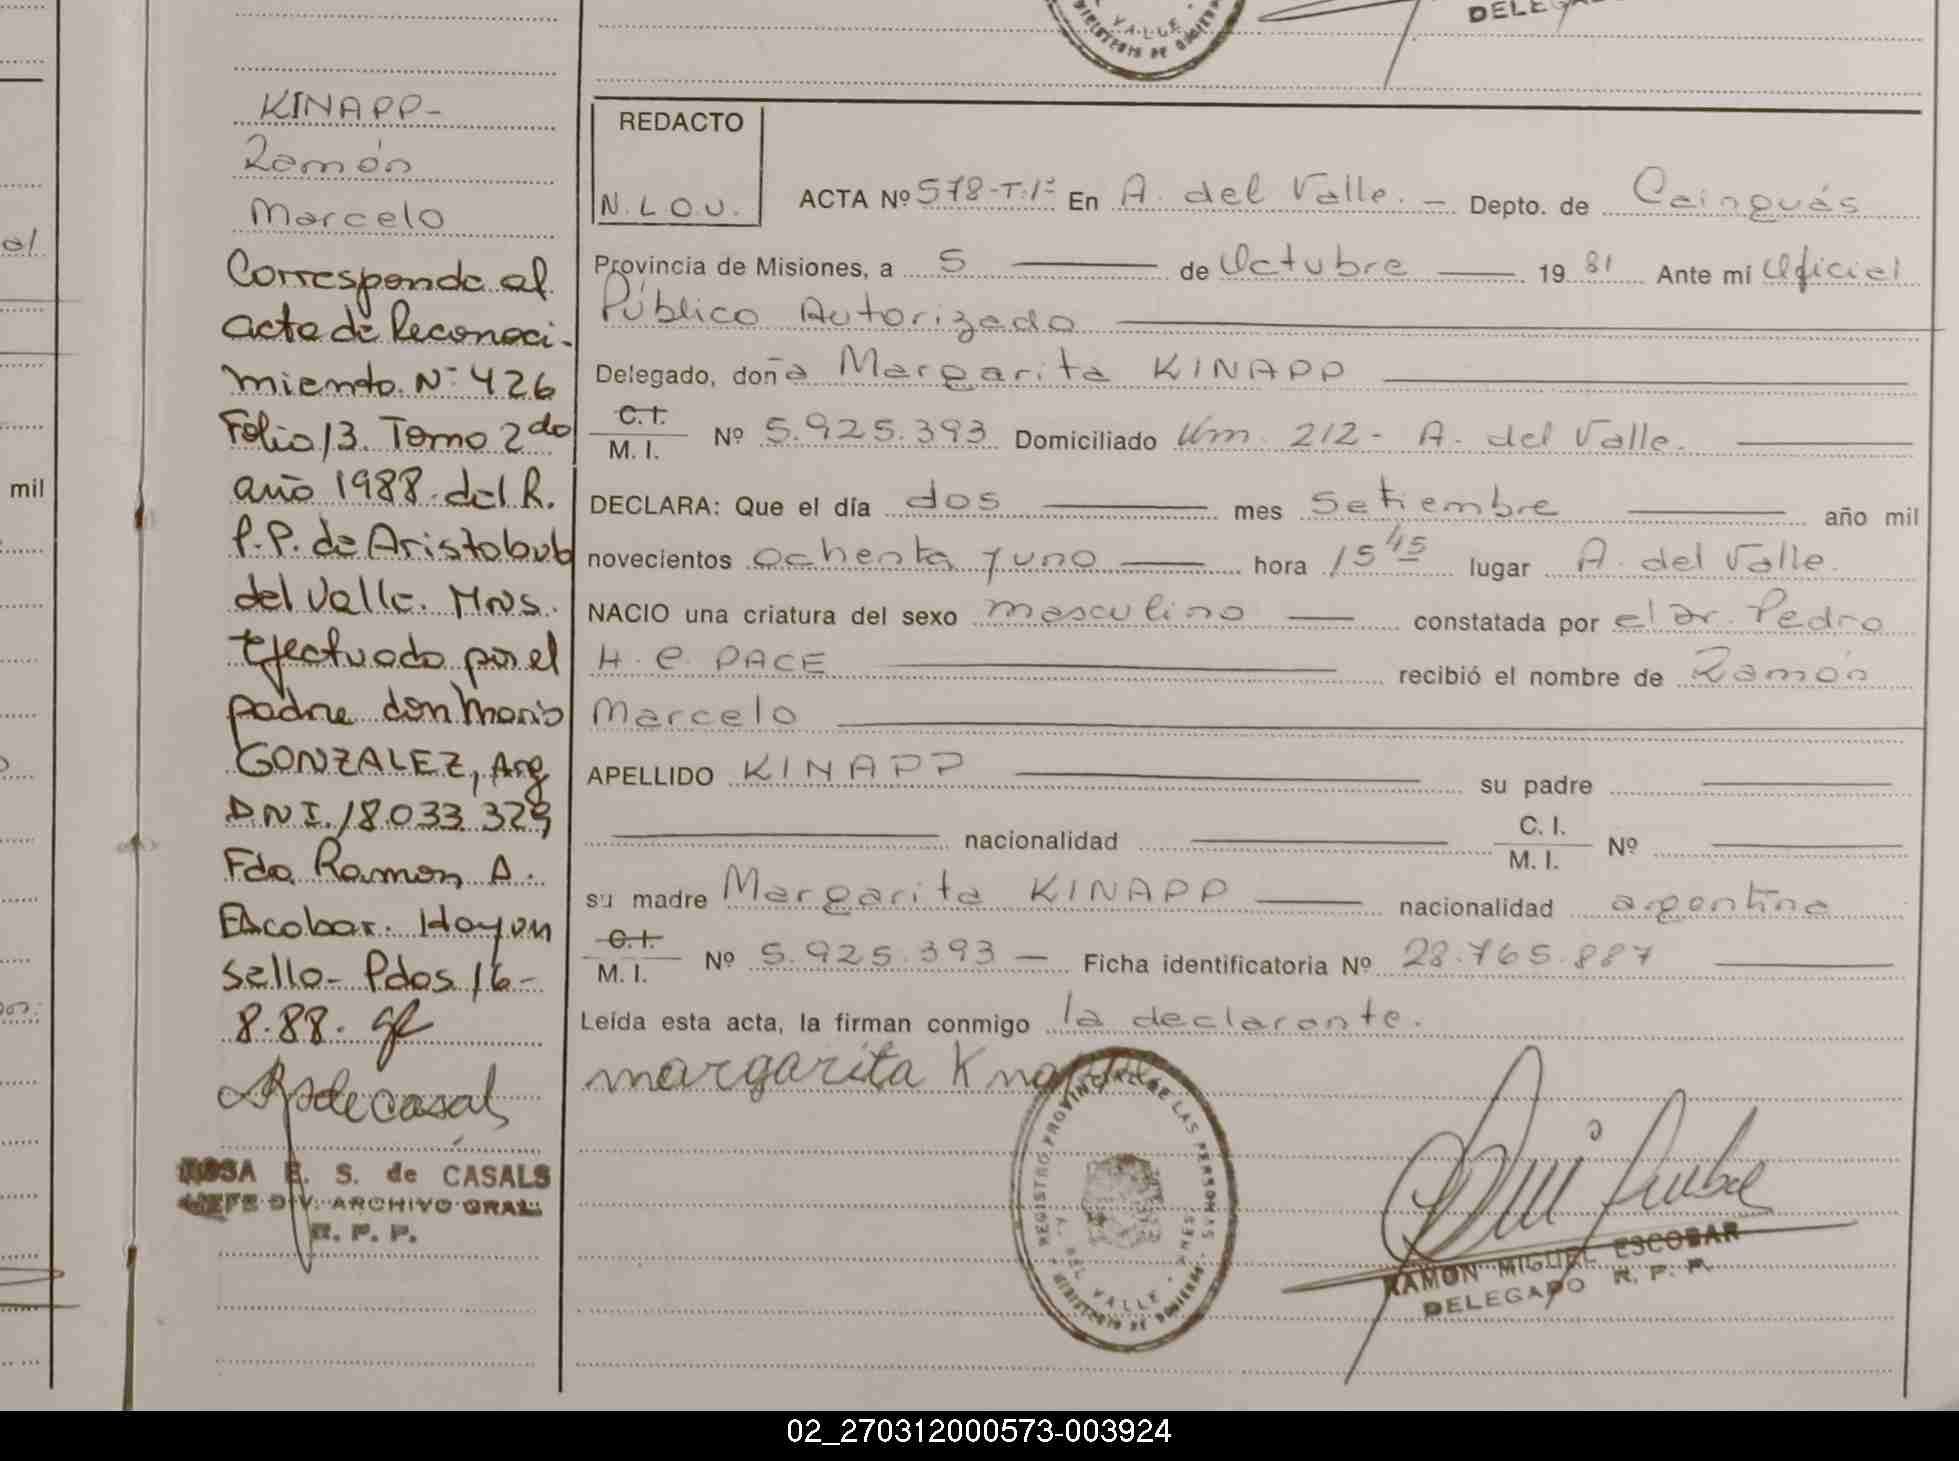 VALLE
DELEGA
KINAPP-
Ramón
Marcelo
Corresponde al
acta de Reconoci-
miento N° 426
Folio 13. Tomo 2do
año 1988 del R.
P.P. de Aristobulo
del Valle. Mns.
Efectuado por el
padre don Mario
GONZALEZ, Arg
D.N.I. 18.033.329
Fdo. Ramon A.
Escobar. Hay un
sello- Pdos 16-
8.88.
ROSA E. S. de CASALS
JEFE DIV. ARCHIVO GRAL.
R. P. P.
REDACTO
N.L.O.U.
ACTA Nº 578-T.1º En A. del Valle. - Depto. de Cainguás
Provincia de Misiones, a 5 de Octubre 19 81 Ante mí Oficial
Público Autorizado
Delegado, doña Margarita KINAPP
C.I. M.I. Nº 5.925.393 Domiciliado Km. 212- A. del Valle.
DECLARA: Que el día dos mes Setiembre año mil
novecientos ochenta y uno hora 15 45 lugar A. del Valle.
NACIO una criatura del sexo masculino constatada por el Dr. Pedro
H. C. PACE recibió el nombre de Ramón
Marcelo
APELLIDO KINAPP su padre
nacionalidad C. I. M. I. Nº
su madre Margarita KINAPP nacionalidad argentina
C.I. M. I. Nº 5.925.393 - Ficha identificatoria Nº 28.765.887
Leída esta acta, la firman conmigo la declarante.
margarita
REGISTRO PROVINCIAL DE LAS PERSONAS
A. DEL VALLE - MNES
MINISTERIO DE GOBIERNO
RAMON MIGUEL ESCOBAR
DELEGADO R. P. P.
mil
02_270312000573-003924